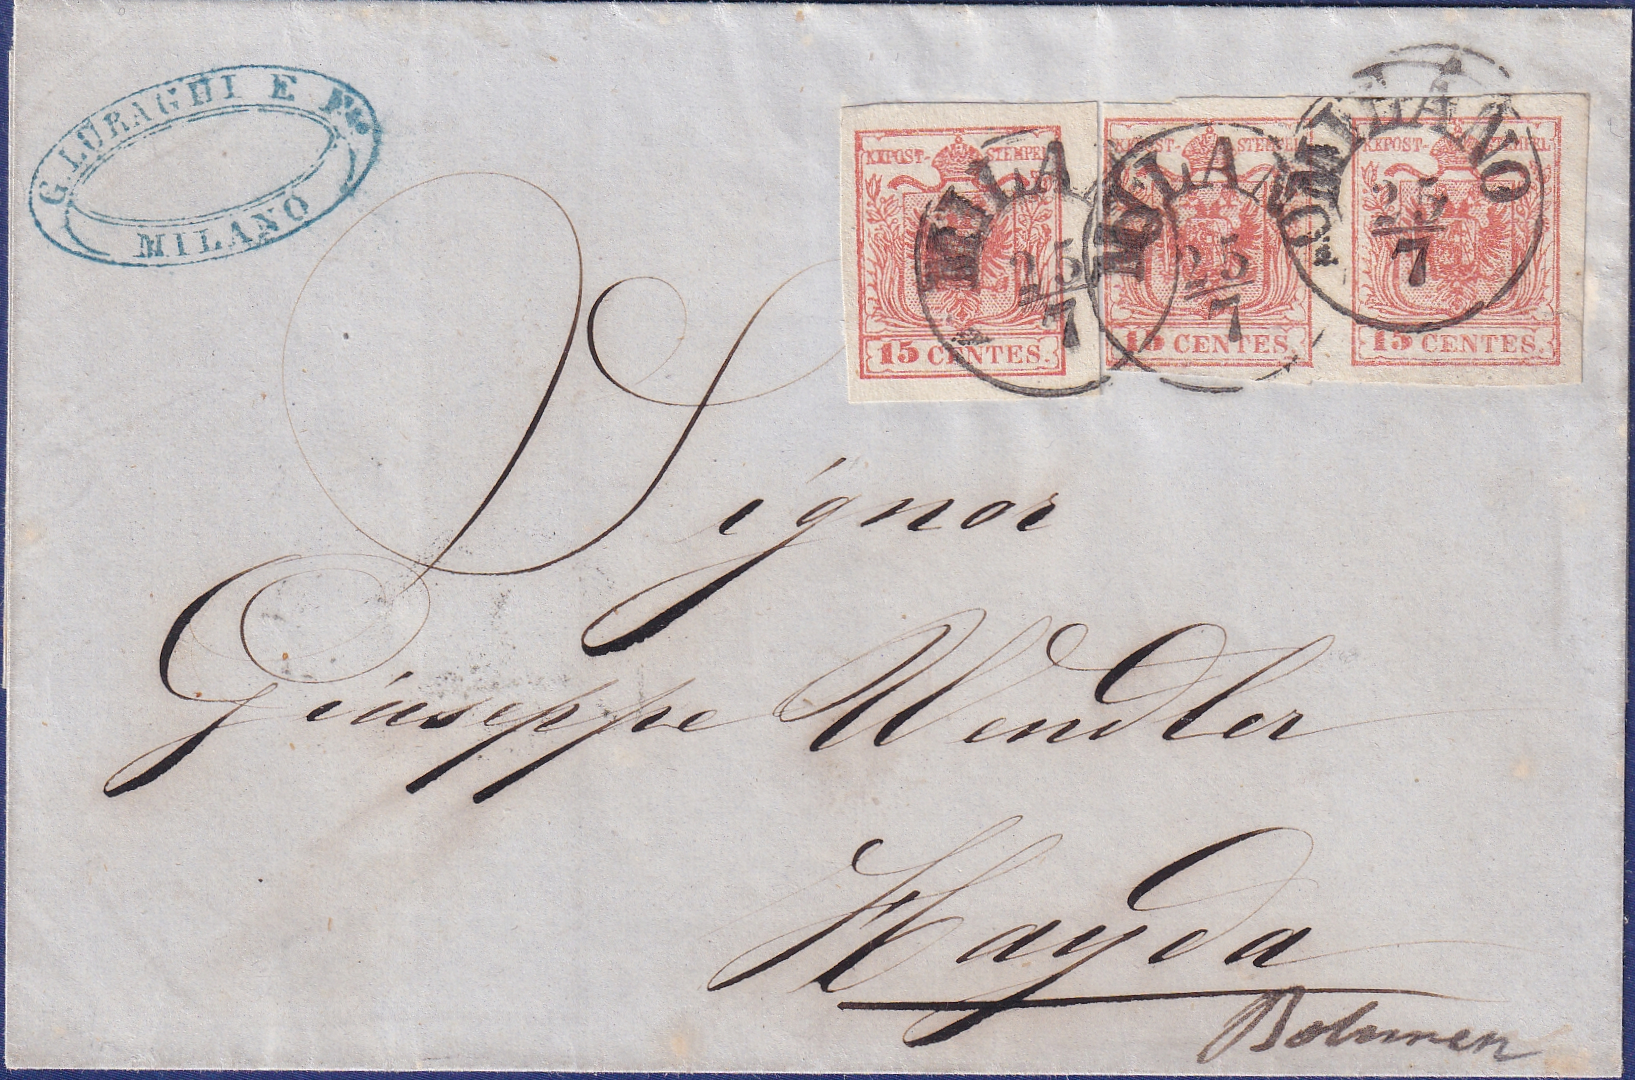 G. LURAGHI E Fo.
MILANO
KKPOST-STEMPEL
KKPOST-STEMPEL
KKPOST-STEMPEL
MILANO
MILANO
MILANO
25/7
25/7
25/7
15 CENTES.
15 CENTES.
15 CENTES.
Signor
Giuseppe Wendler
Hayda
Bohmen